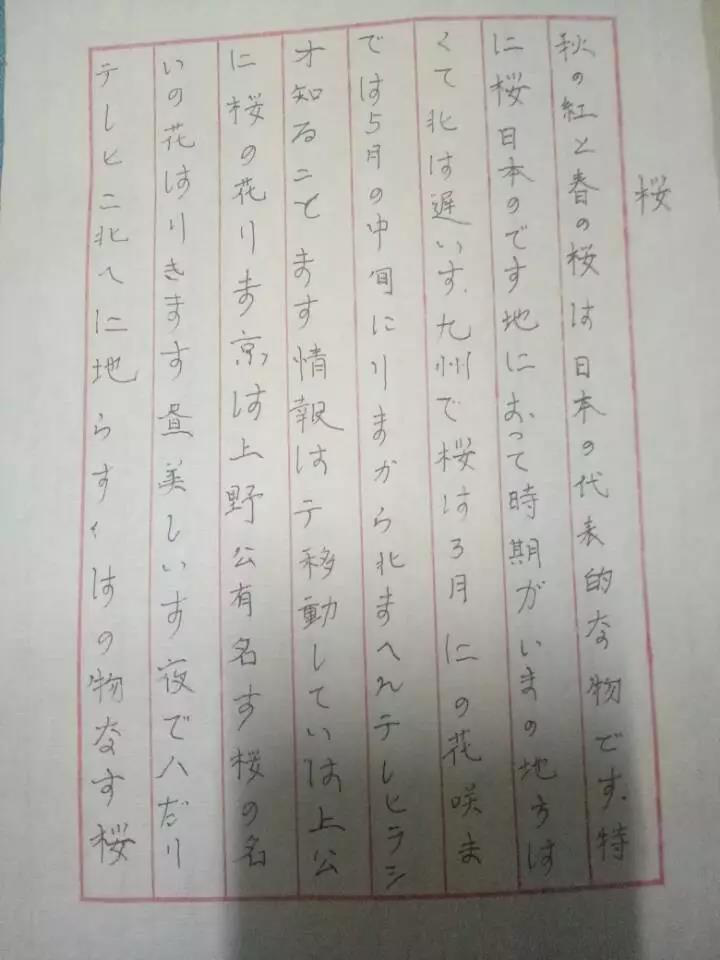 桜
秋の紅と春の桜は日本の代表的な物です.特
に桜日本のです地におって時期がいまの地方は
くて北は遅いす.九州で桜は3月に の花咲ま
では5月の中旬にりまから北まへれテレヒラシ
オ知ることます情報はテ移動してい は上公
に桜の花りま京は上野公有名す桜の名
いの花はりきます昼美しいす夜で八だり
テレヒニ北へに地らすくはの物なす桜